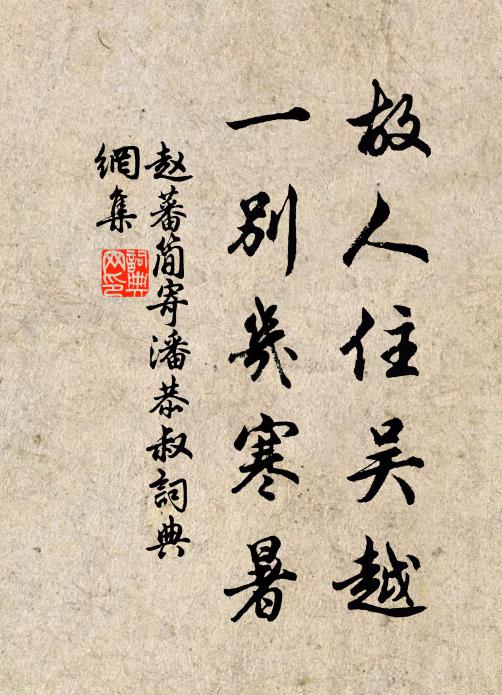 故人住吴越
一别幾寒暑
赵蕃简寄潘恭叔詞典
網集
詞典
网印